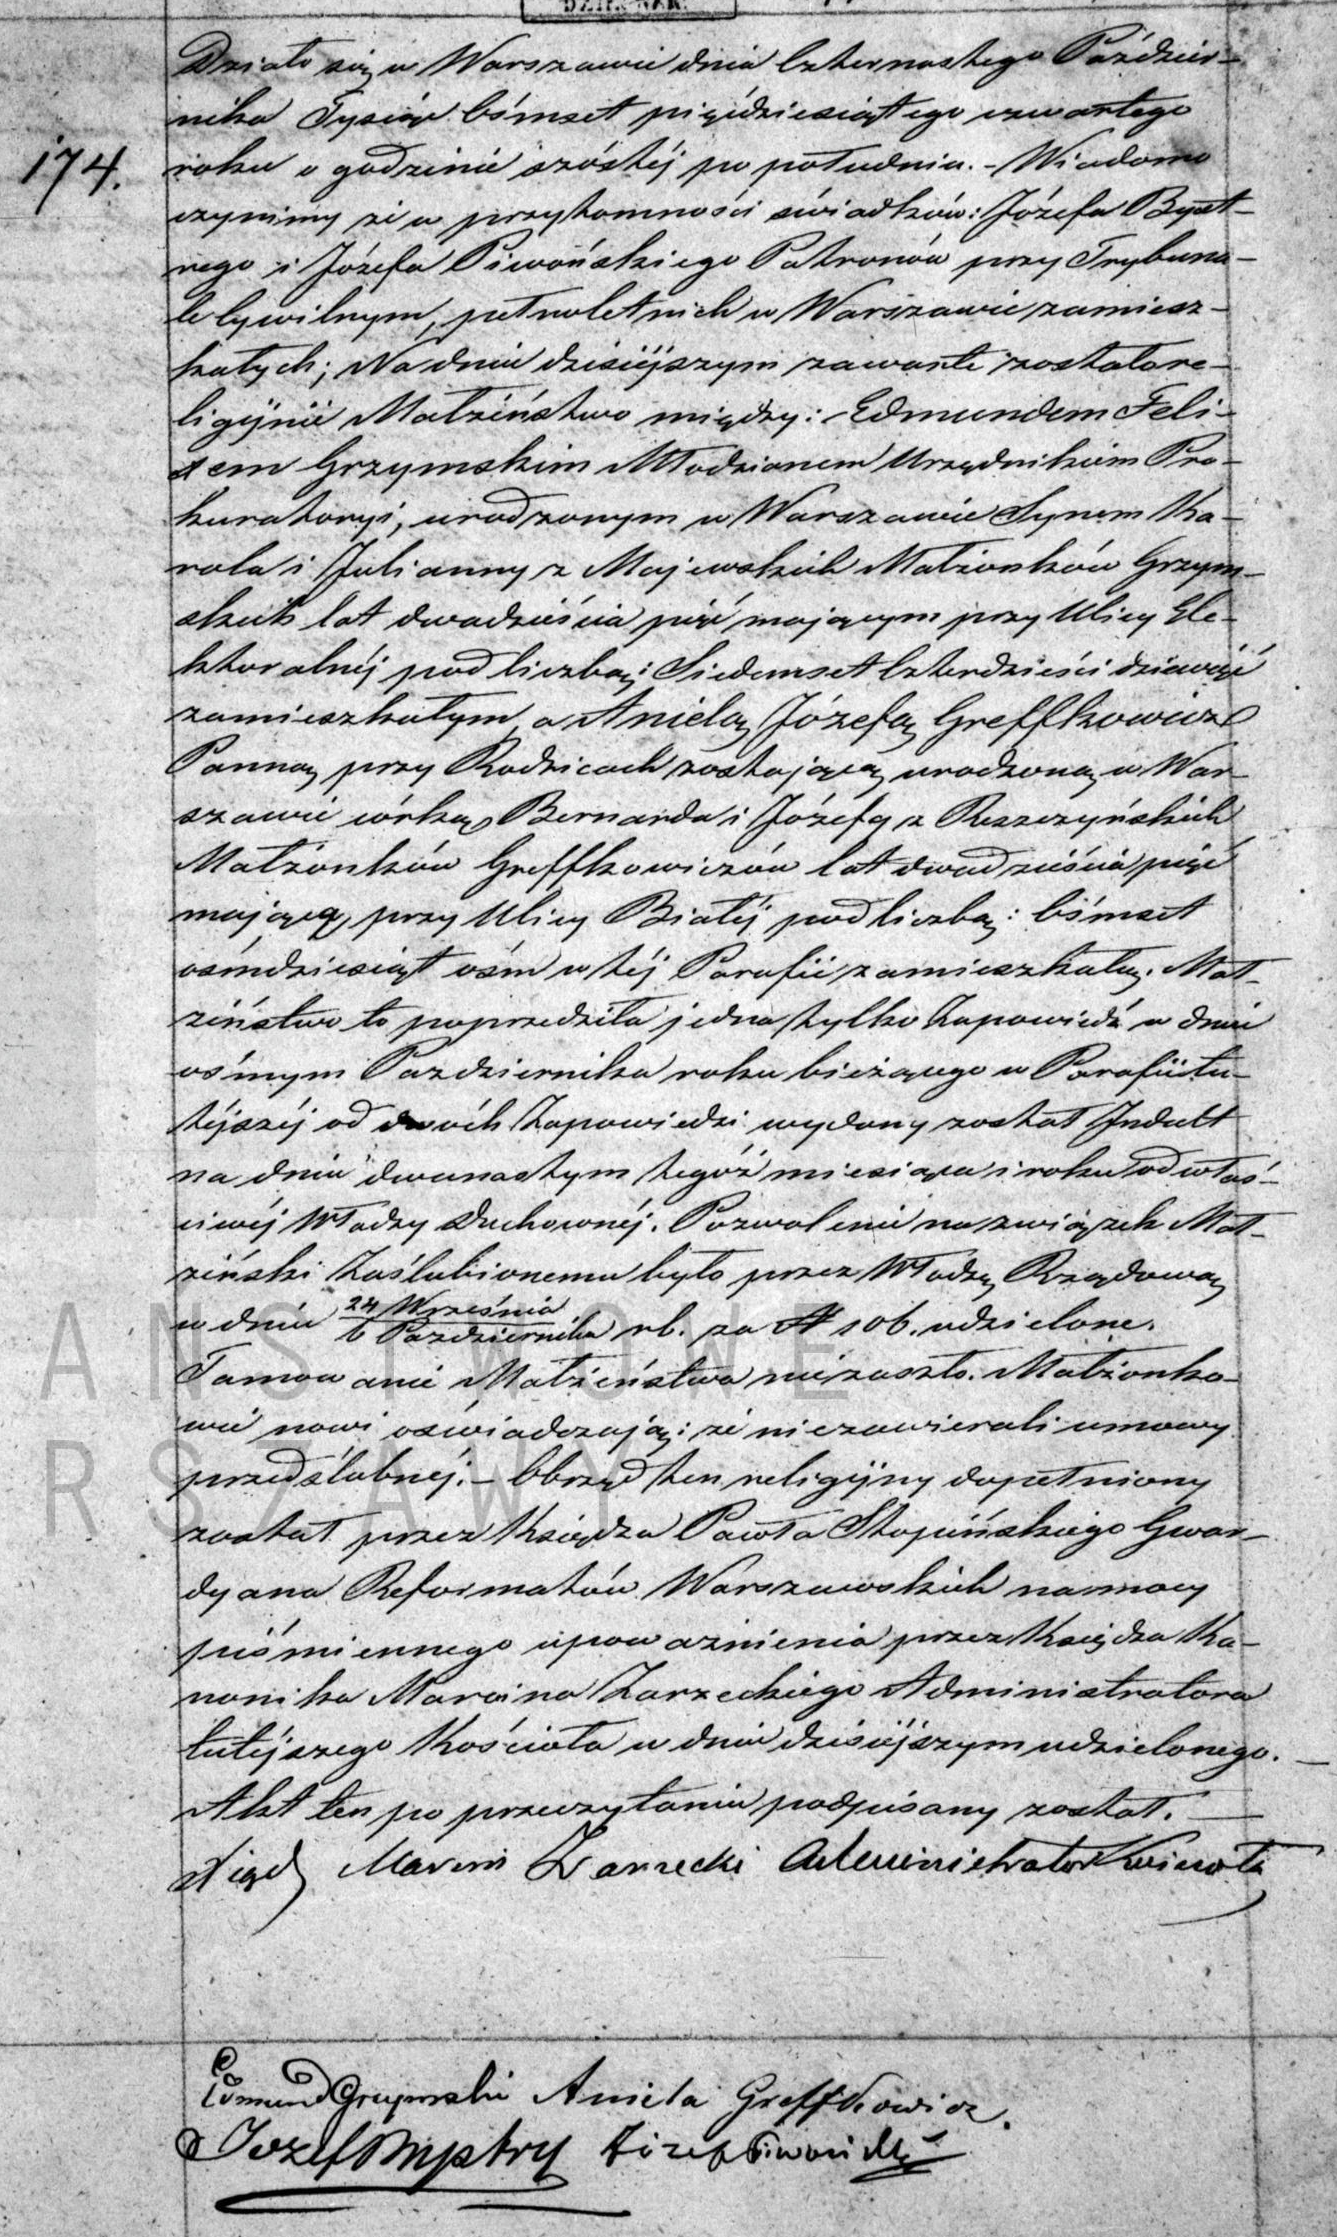 174.
Działo się w Warszawie dnia Czternastego Paździer-
nika Tysiąc Ośmset pięćdziesiątego czwartego
roku o godzinie szóstéj po południu. – Wiadomo
czynimy że w przytomności świadków: Józefa Byst-
rego i Józefa Piwońskiego Patronów przy Trybuna-
le Cywilnym, pełnoletnich w Warszawie zamiesz-
kałych; Na dniu dzisiéjszym zawarte zostało re-
ligijnie Małżeństwo między: Edmundem Feli-
xem Grzymskim Młodzianem Urzędnikiem Pro-
kuratoryi, urodzonym w Warszawie Synem Ka-
rola i Julianny z Majewskich Małżonków Grzym-
skich lat dwadzieścia pięć mającym przy Ulicy Ele-
ktoralnéj pod liczbą: Siedemset Czterdzieści dziewięć
zamieszkałym, a Anielą Józefą Greffkowicz
Panną przy Rodzicach zostającą urodzoną w War-
szawie córką Bernarda i Józefy z Reszczyńskich
Małżonków Greffkowiczów lat dwadzieścia pięć
mającą, przy Ulicy Białéj pod liczbą: Ośmset
ośmdziesiąt ośm w téj Parafii zamieszkałą. Mał-
żeństwo to poprzedziła jedna tylko Zapowiedź w dniu
ośmym Pazdziernika roku bieżącego w Parafii tu-
téjszéj od dwóch Zapowiedzi wydany został Indult
na dniu dwunastym tegóż miesiąca i roku od właś-
ciwéj Władzy Duchownéj. Pozwolenie na związek Mał-
żeński Zaślubionemu było przez Władzę Rządową
w dniu 24 Września
6 Pazdziernika rb. za N 106. udzielone.
Tamowanie Małżeństwa nie zaszło. Małżonko-
wie nowi oświadczają: że niezawierali umowy
przedślubnéj. – Obrzęd ten religijny dopełniony
został przez Księdza Pawła Stopińskiego Gwar-
dyana Reformatów Warszawskich na mocy
piśmiennego upoważnienia przez Księdza Ka-
nonika Marcina Zarzeckiego Administratora
tutéjszego Kościoła w dniu dzisiéjszym udzielonego. –
Akt ten po przeczytaniu podpisany został. –
Xiądz Marcin Zarzecki Administrator Kościoła
Edmund Grzymski Aniela Greffkowicz.
Jozef Bystry Józef Piwoński